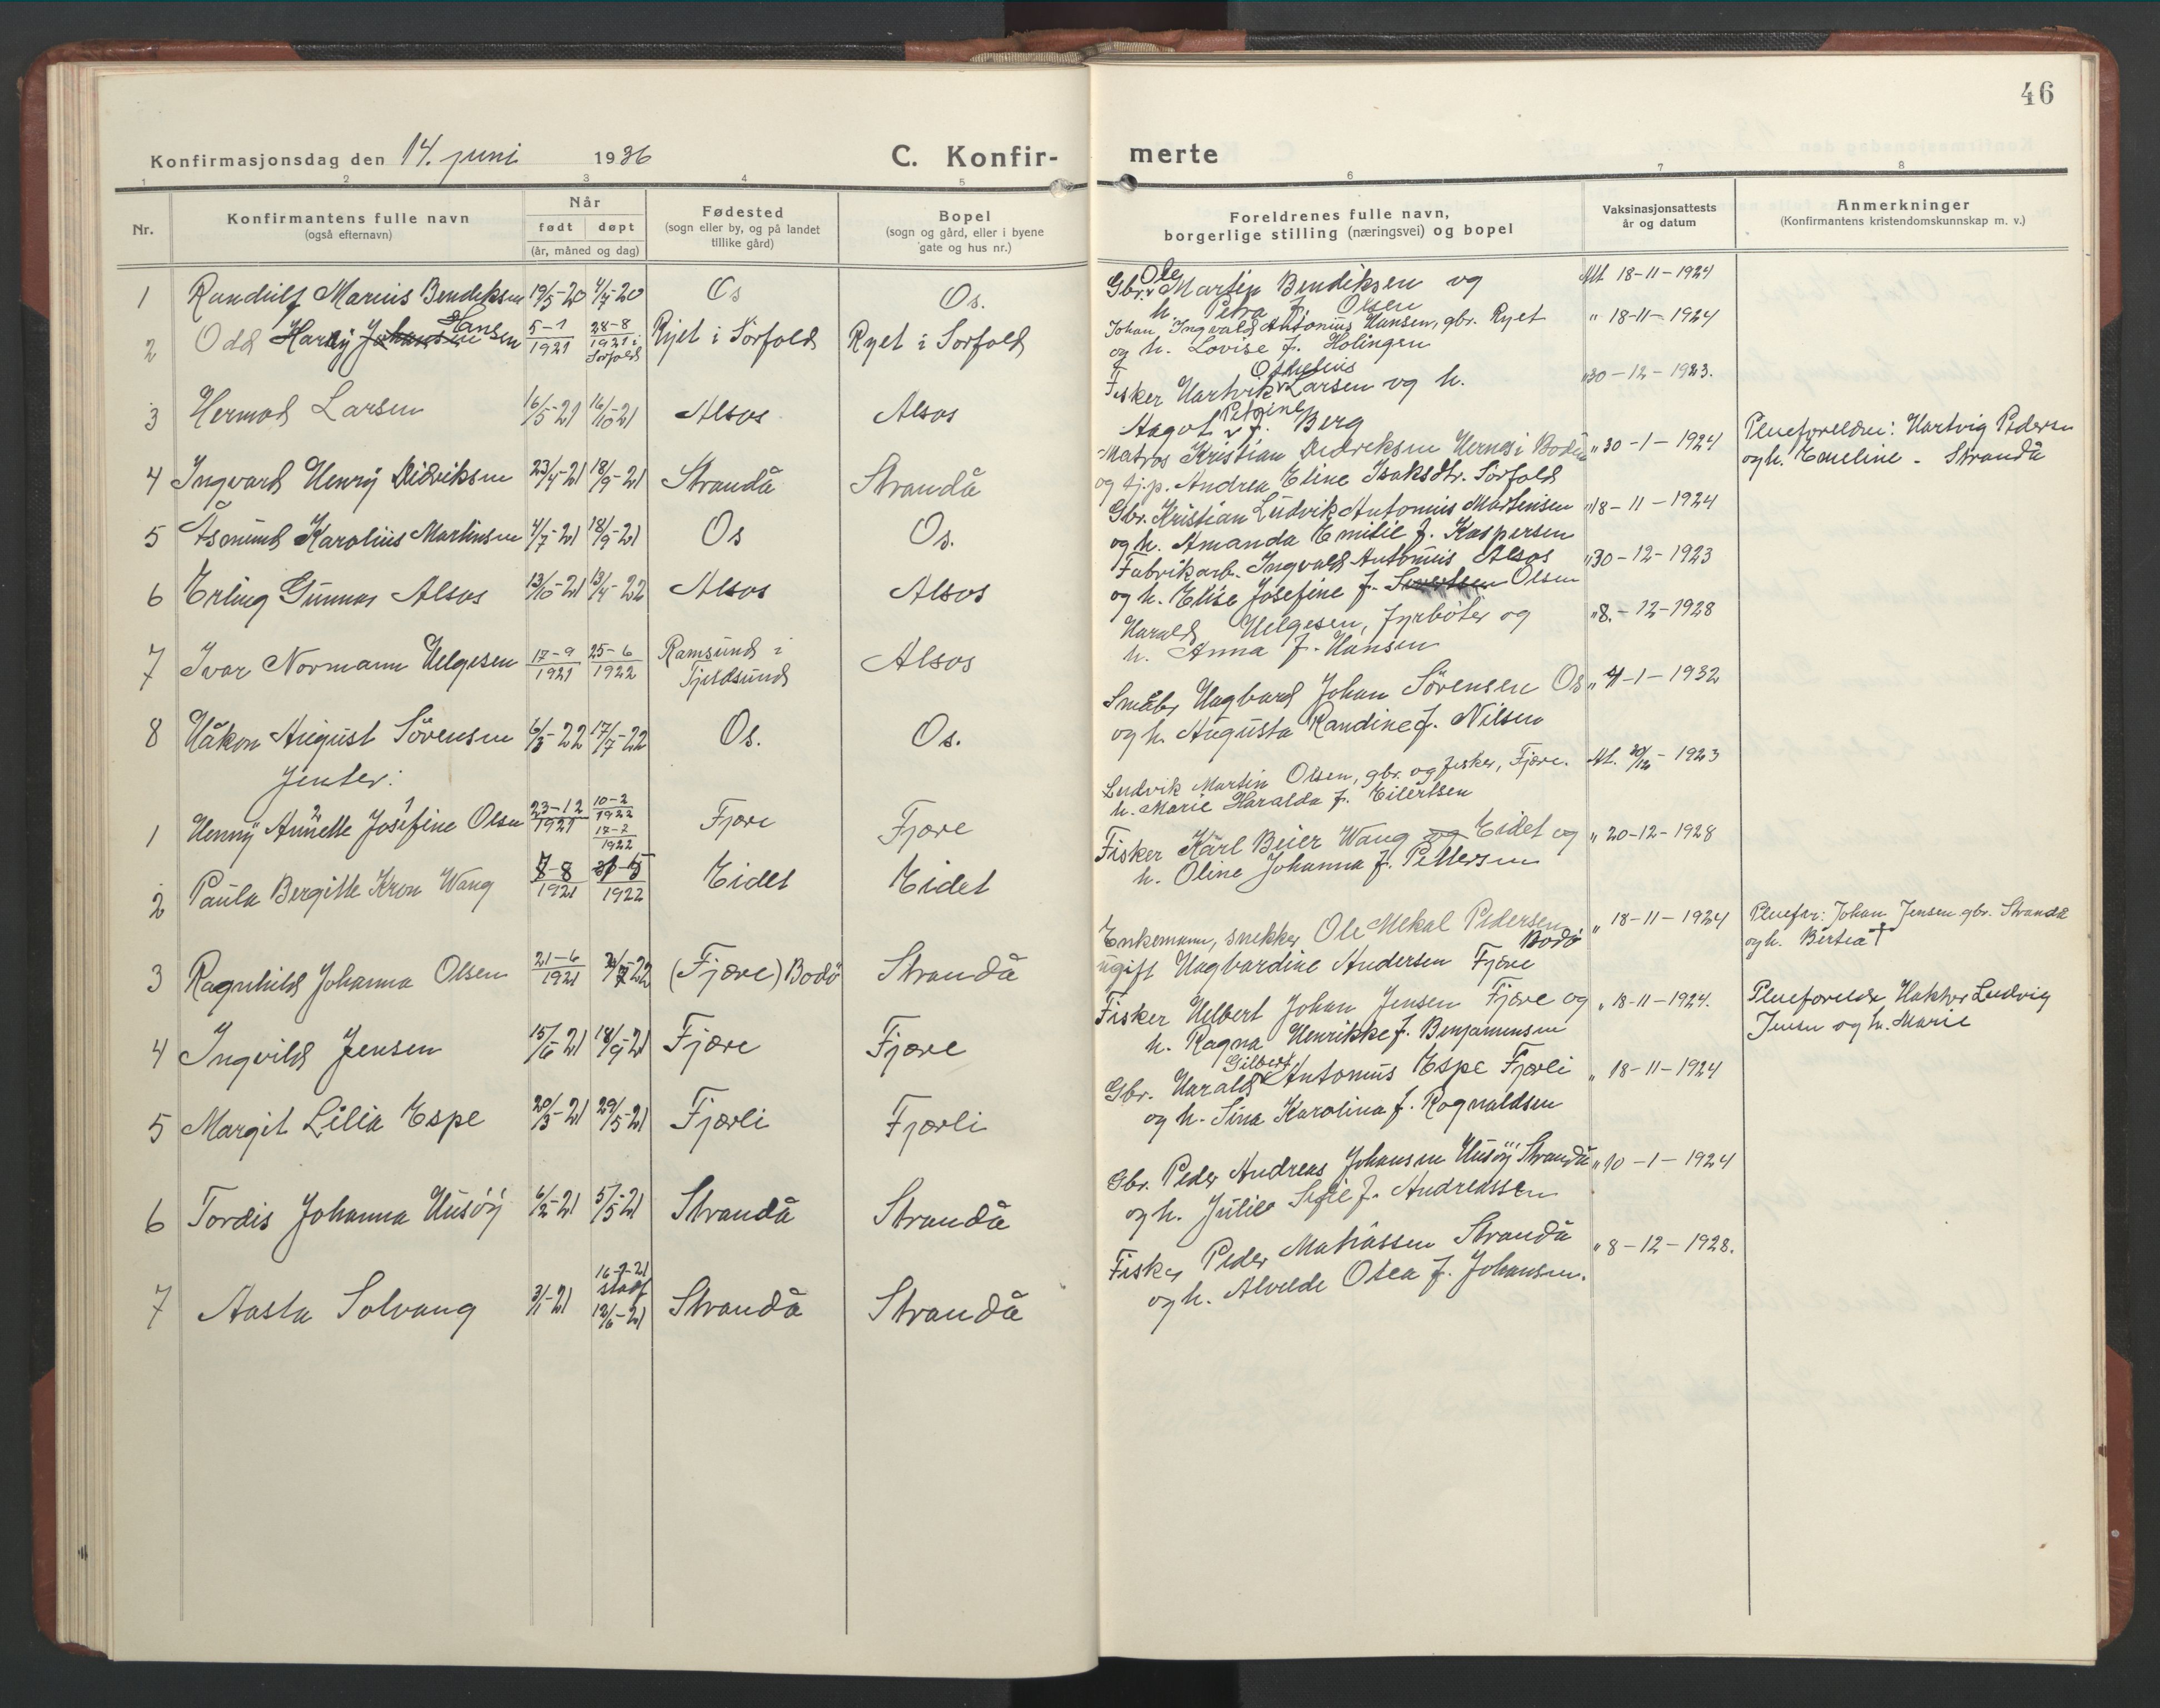 46
Konfirmasjonsdag den 14. juni 1936 C. Konfir-
merte
1 2 3 4 5 6 7 8
Nr.
Konfirmantens fulle navn
(også efternavn)
Når
født døpt
(år, måned og dag)
Fødested
(sogn eller by, og på landet
tillike gård)
Bopel
(sogn og gård, eller i byene
gate og hus nr.)
Foreldrenes fulle navn,
borgerlige stilling (næringsvei) og bopel
Vaksinasjonsattests
år og datum
Anmerkninger
(Konfirmantens kristendomskunnskap m. v.)
1 Randulf Marius Bendiksen 19/5-20 4/7-20 Os Os.
Gbr. Ole Martin Bendiksen og Att. 18-11-1924
h. Petra f. Olsen
2 Odd Harry Johansen Hansen 5-1 1921 28-8 1921 i Sörfold Ryet i Sörfold Ryet i Sörfold
Johan Ingvald Antonius Hansen, gbr. Ryet " 18-11-1924
og h. Lovise f. Holingen
3 Hermod Larsen 16/5-21 16/10-21 Alsos Alsos
Fisker Hartvik Othelius Larsen og h. " 30-12-1923.
Aagot Petrine f. Berg
4 Ingvard Henry Didriksen 23/4-21 18/9-21 Strandå Strandå
Matros Kristian Didriksen Hernes i Bodin " 30-1-1924 Pleieforeldre: Hartvig Pedersen
og tj.p. Andrea Eline Isaksdtr. Sörfold og h. Emeline - Strandå
5 Åsmund Karolius Martinsen 4/7-21 18/9-21 Os Os.
Gbr. Kristian Ludvik Antonius Martinsen " 18-11-1924
og h. Amanda Emilie f. Kaspersen
6 Erling Gunnar Alsos 13/10-21 13/4-22 Alsos Alsos
Fabrikarb. Ingvald Antonius Alsos " 30-12-1923
og h. Elise Josefine f. Sivertsen Olsen
7 Ivar Normann Helgesen 17-9 1921 25-6 1922 Ramsund i Tjeldsund Alsos
Harald Helgesen, fyrböter og " 8.-12-1928
h. Anna f. Hansen
8 Håkon August Sörensen 6/3-22 17/7-22 Os. Os.
Småbr. Hagbard Johan Sörensen Os " 4-1-1932
og h. Augusta Randine f. Nilsen
Jenter:
1 Henny Annette Josefine Olsen 23-12 1921 10-2 1922 17-2 1922 Fjære Fjære
Ludvik Martin Olsen, gbr. og fisker, Fjære. Att. 30/12-1923
h. Marie Haralda f. Eilertsen
2 Paula Bergitte Kron Wang 7-8 1921 21-5 1922 Eidet Eidet
Fisker Karl Beier Wang og Eidet og " 20-12-1928
h. Oline Johanna f. Pettersen
3 Ragnhild Johanna Olsen 21-6 1921 -22 (Fjære) Bodö Strandå
Enkemann, snekker Ole Mekal Pedersen Bodö " 18-11-1924 Pleiefor: Johan Jensen gbr. Strandå
ugift Hagbardine Andersen Fjære og h. Bertea †
4 Ingvild Jensen 15/6-21 18/9-21 Fjære Fjære
Fisker Helbert Johan Jensen Fjære og " 18-11-1924. Pleieforeldre Ludvig
h. Ragna Henrikke f. Benjaminsen Jensen og h. Marie
5 Margit Lilia Espe 20/3-21 29/5-21 Fjærli Fjærli
Gbr. Harald Gilbert Antonius Espe Fjærli " 18-11-1924
og h. Sina Karolina f. Rognaldsen
6 Tordis Johanna Husöy 6/2-21 5/5-21 Strandå Strandå
Gbr. Peder Andreas Johansen Husöy Strandå " 10-1-1924
og h. Julie Sofie f. Andreassen
7 Aasta Solvang 3/1-21 16-2-21 stadf 12/6-21 Strandå Strandå
Fisker Peder Matiassen Strandå " 8-12-1928.
og h. Alvilde Olea f. Johansen.